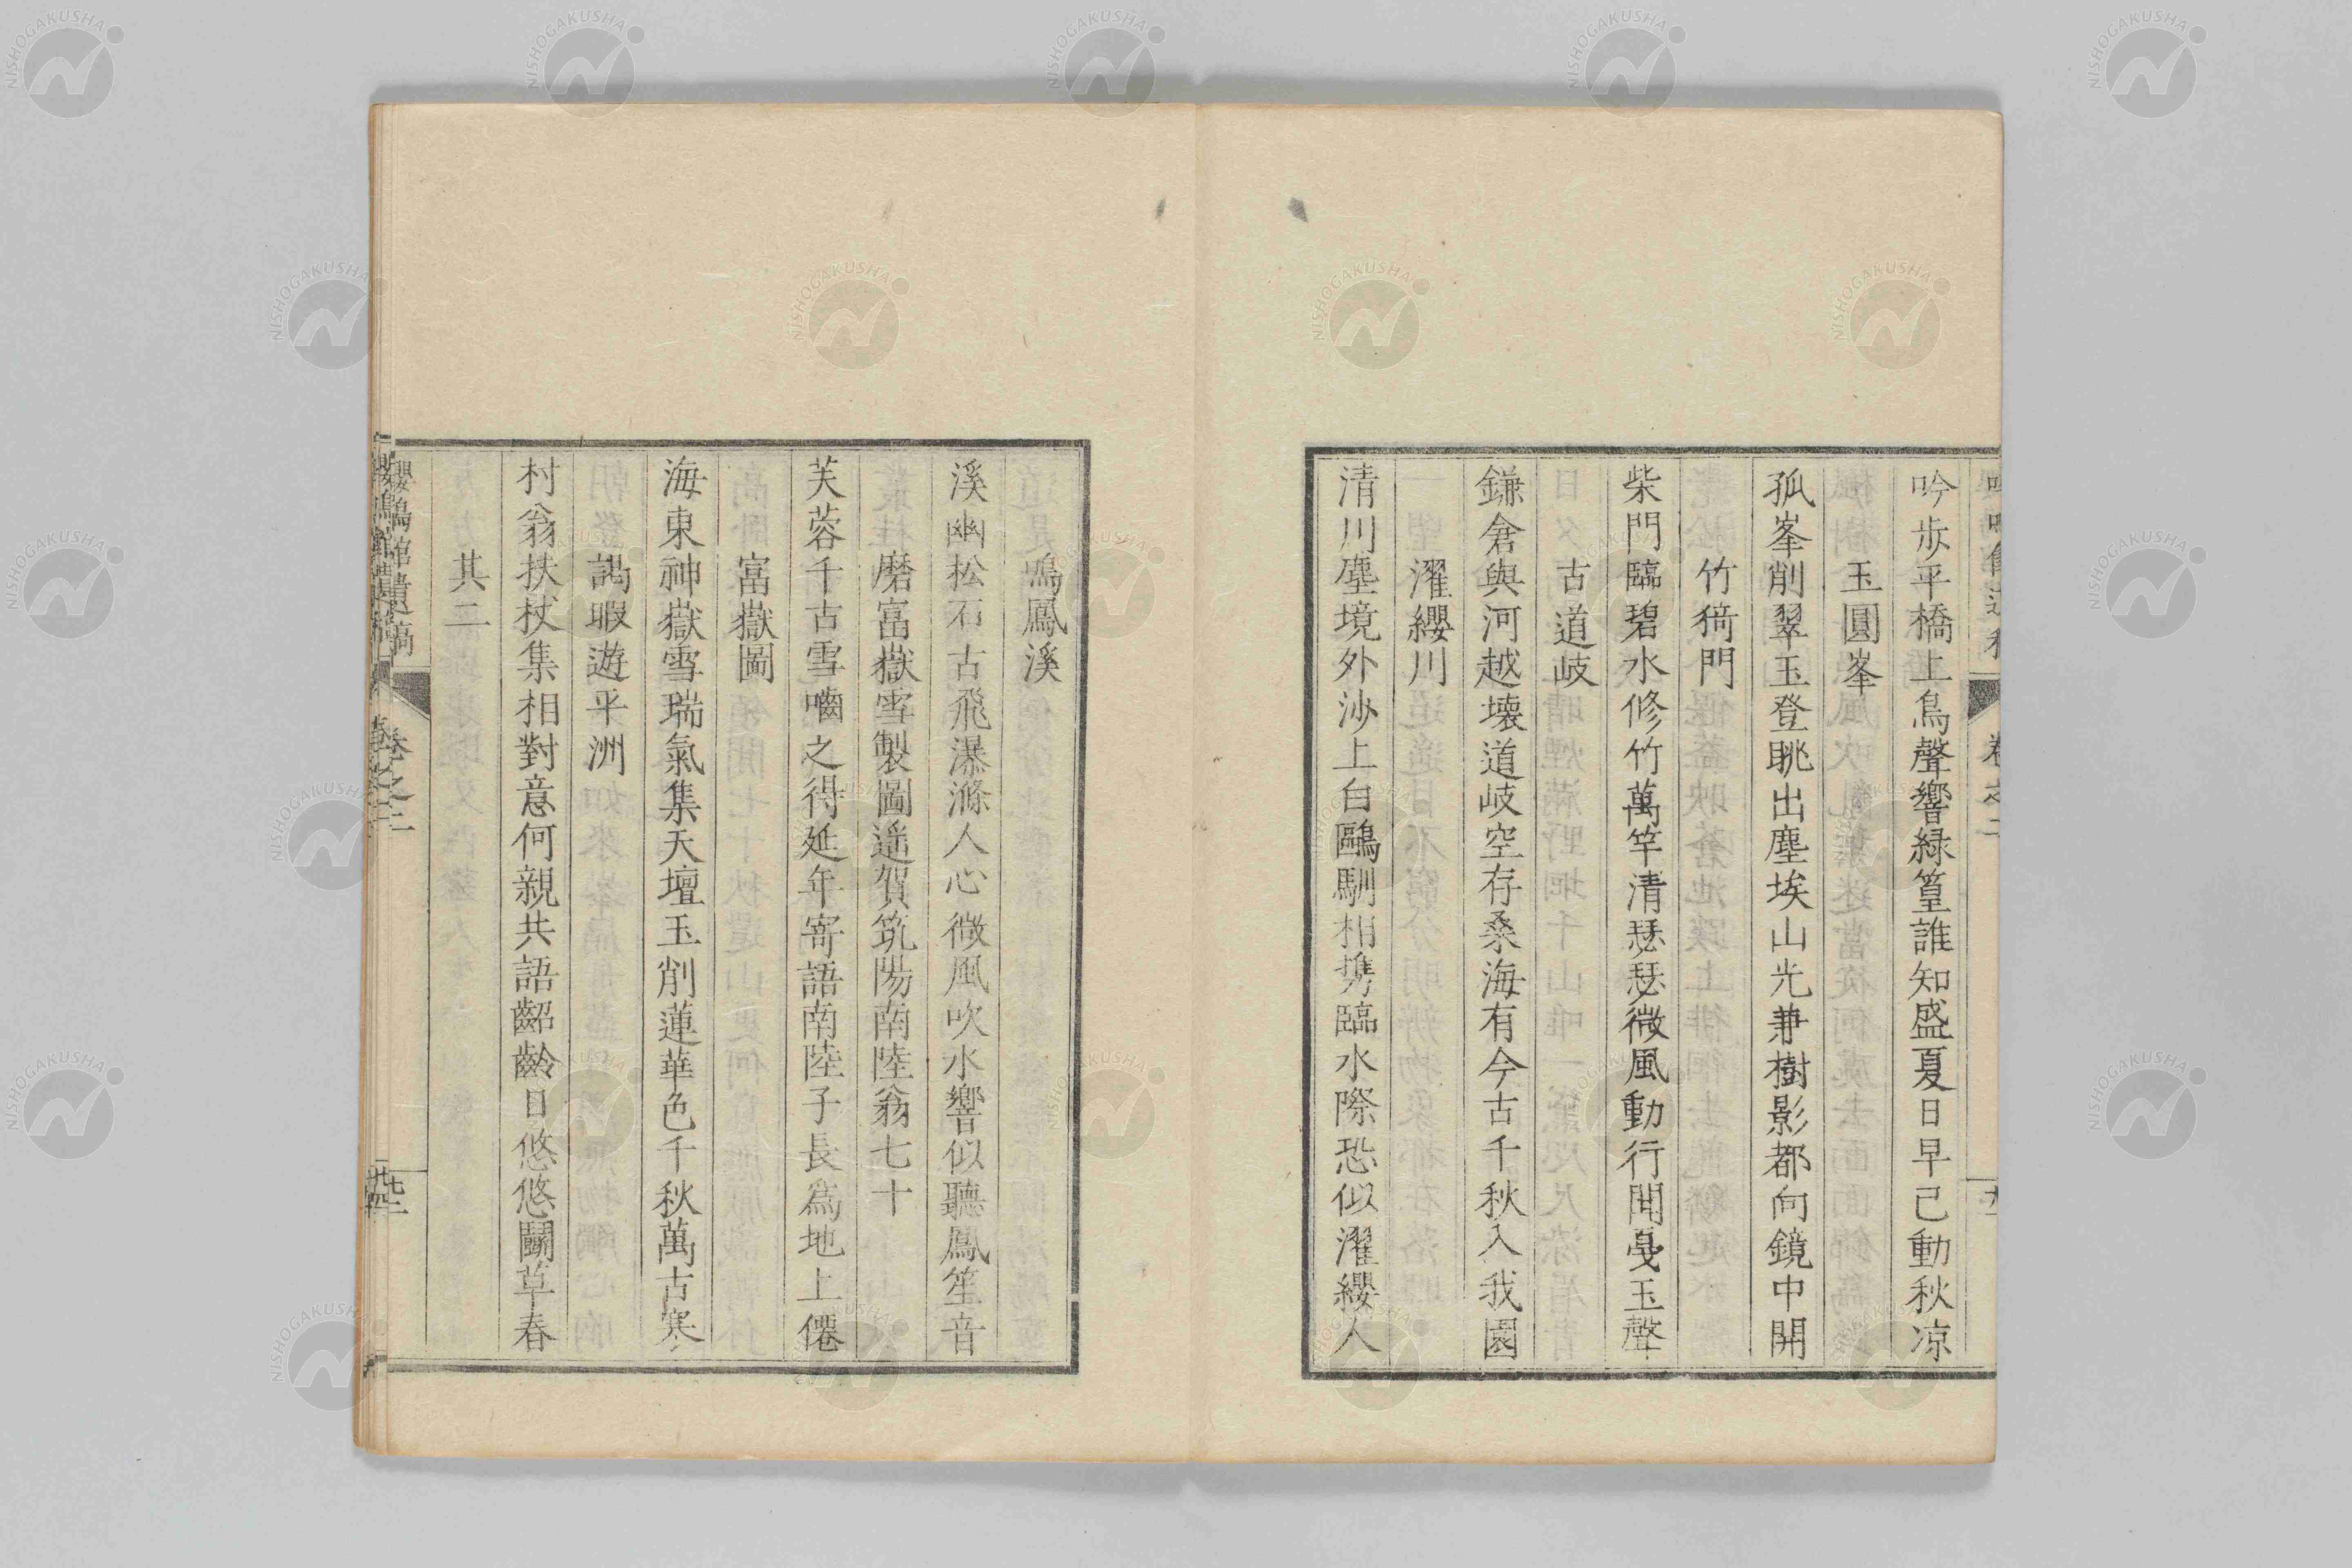 吟歩平橋上鳥聲響緑篁誰知盛夏日早已動秋凉
玉圓峯
孤峯削翠玉登眺出塵埃山光兼樹影都向鏡中開
竹猗門
柴門臨碧水修竹萬竿清瑟瑟微風動行聞戞玉聲
古道岐
鎌倉與河越壊道岐空存桑海有今古千秋入我園
濯纓川
清川塵境外沙上白鷗馴相携臨水際恐似濯纓人
鳴鳳溪
溪幽松石古飛瀑滌人心微風吹水響似聽鳳笙音
磨富嶽雪製圖遥賀筑陽南陸翁七十
芙蓉千古雪嚙之得延年寄語南陸子長為地上僊
富嶽圖
海東神嶽雪瑞氣集天壇玉削蓮華色千秋萬古寒
謁暇遊平洲
村翁扶杖集相對意何親共語齠齡日悠悠鬭草春
其二
嚶鳴館遺稿
卷之二
NISHOGAKUSHA